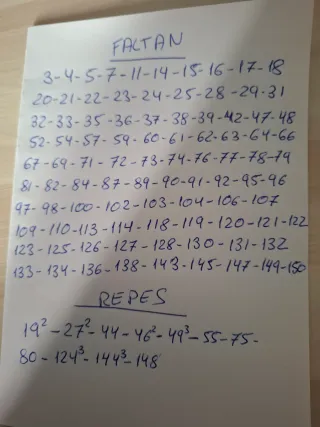 FALTAN
3-4-5-7-11-14-15-16-17-18
20-21-22-23-24-25-28-29-31
32-33-35-36-37-38-39-42-47-48
52-54-57-59-60-61-62-63-64-66
67-69-71-72-73-74-76-77-78-79
81-82-84-87-89-90-91-92-95-96
97-98-100-102-103-104-106-107
109-110-113-114-118-119-120-121-122
123-125-126-127-128-130-131-132
133-134-136-138-143-145-147-149-150
REPES
19²-27²-44-46²-49³-55-75-
80-124³-144³-148